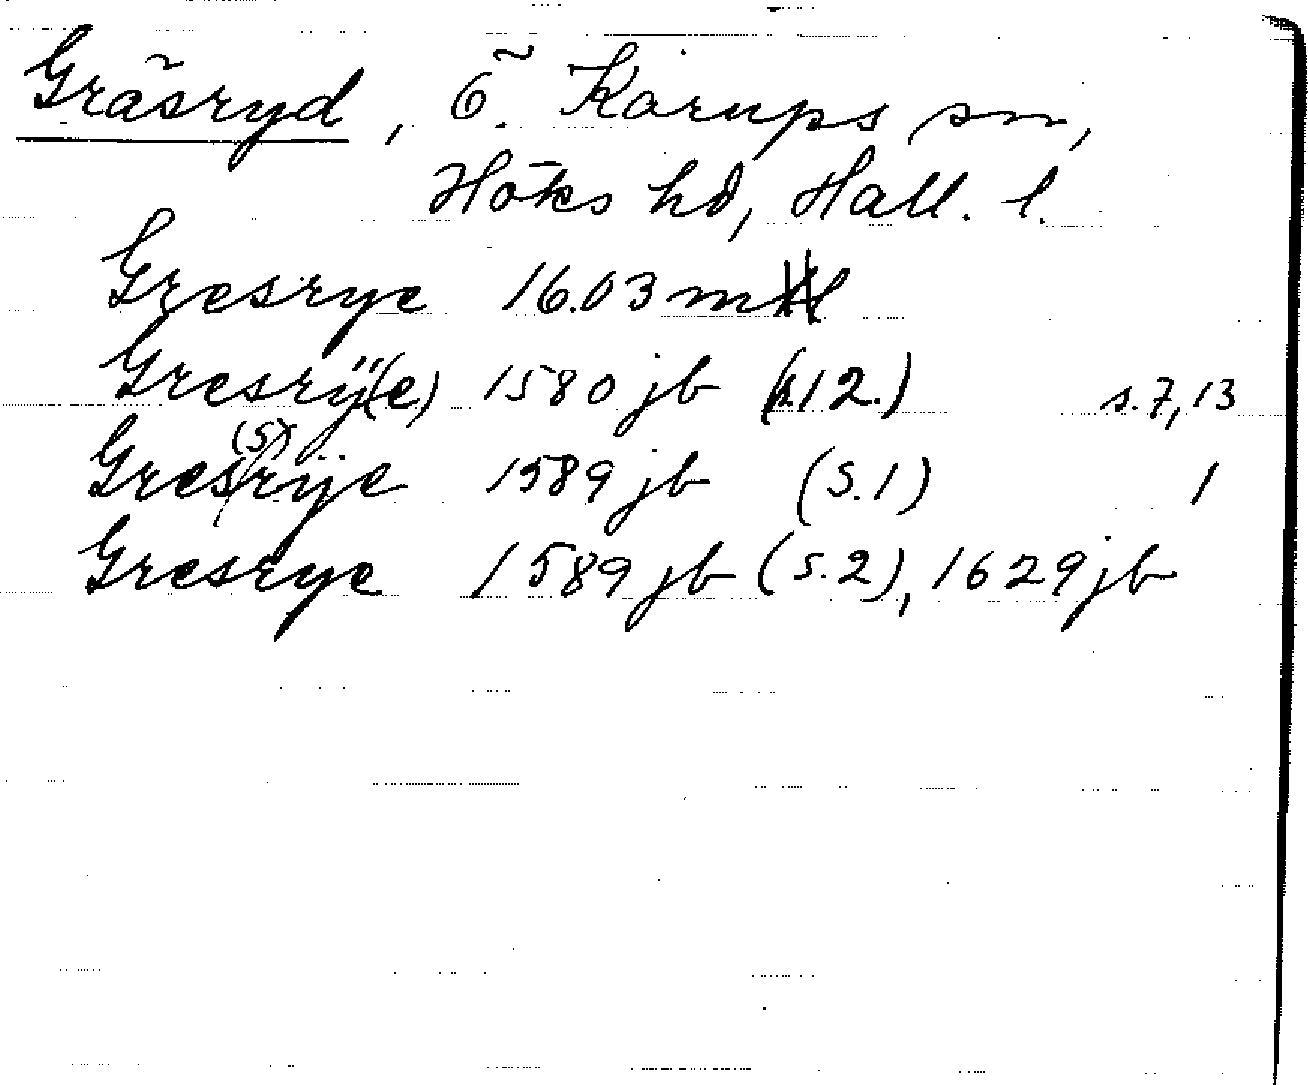 Gräsryd, Ö. Karups sn,
Höks hd, Hall. l.
Gresrye 1603 mtl
Gresrÿ(e) 1580 jb (s. 12.) s. 7, 13
Gres(s)rÿe 1589 jb (s. 1) 1
Gresrye 1589 jb (s. 2), 1629 jb